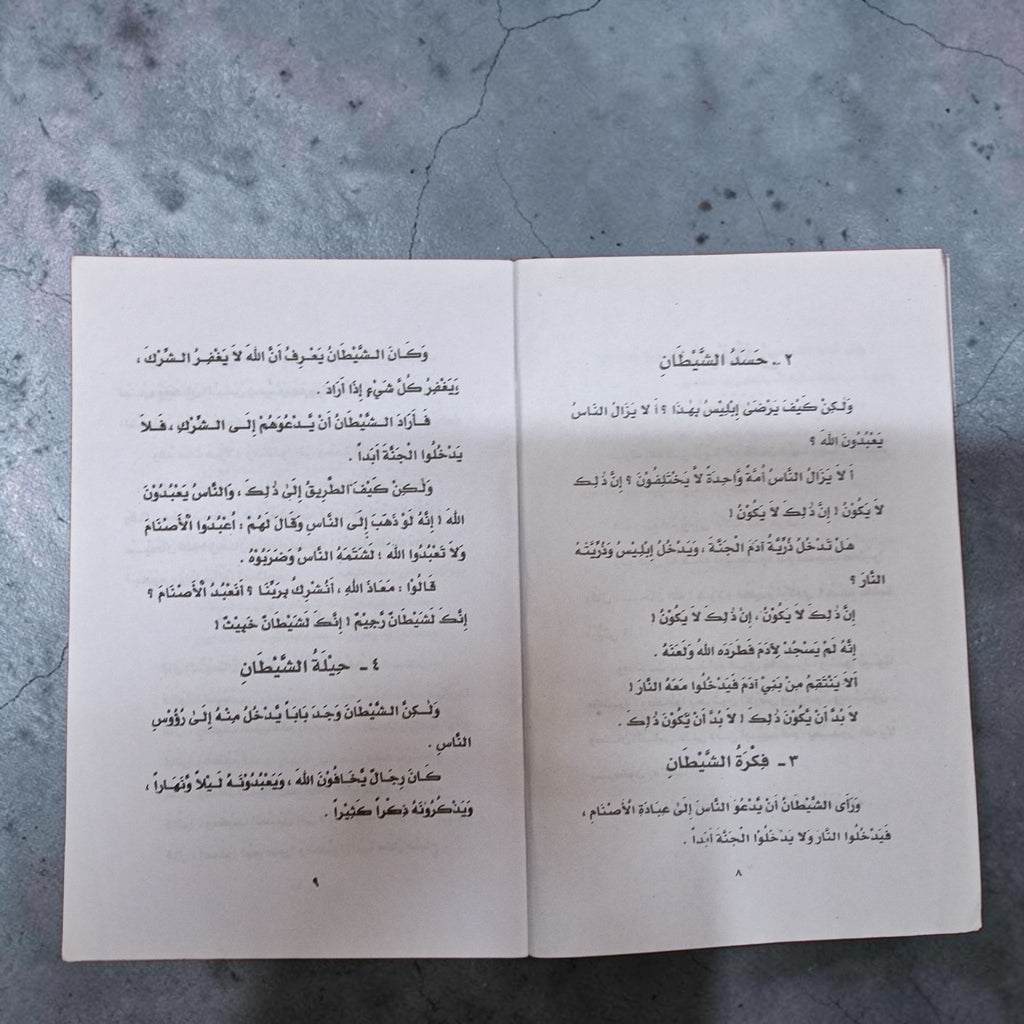 ٢ - حَسَدُ الشَّيْطَانِ
وَلٰكِنْ كَيْفَ يَرْضَىٰ إِبْلِيْسُ بِهٰذَا ؟ أَ لَا يَزَالُ النَّاسُ
يَعْبُدُونَ اللهَ ؟
أَ لَا يَزَالُ النَّاسُ أُمَّةً وَّاحِدَةً لاَّ يَخْتَلِفُوْنَ ؟ إِنَّ ذٰلِكَ
لَا يَكُوْنُ ! إِنَّ ذٰلِكَ لَا يَكُوْنُ !
هَلْ تَدْخُلُ ذُرِّيَّةُ آدَمَ الْجَنَّةَ ، وَيَدْخُلُ إِبْلِيْسُ وَذُرِّيَّتُهُ
النَّارَ ؟
إِنَّ ذٰلِكَ لَا يَكُوْنُ ، إِنَّ ذٰلِكَ لَا يَكُوْنُ !
إِنَّهُ لَمْ يَسْجُدْ لِآدَمَ فَطَرَدَهُ اللهُ وَلَعَنَهُ .
أَلَا يَنْتَقِمُ مِنْ بَنِيْ آدَمَ فَيَدْخُلُوا مَعَهُ النَّارَ !
لَا بُدَّ أَنْ يَّكُوْنَ ذٰلِكَ ! لَا بُدَّ أَنْ يَّكُوْنَ ذٰلِكَ .
٣ - فِكْرَةُ الشَّيْطَانِ
وَرَأَى الشَّيْطَانُ أَنْ يَّدْعُوَ النَّاسَ إِلَىٰ عِبَادَةِ الْأَصْنَامِ ،
فَيَدْخُلُوا النَّارَ وَلَا يَدْخُلُوْا الْجَنَّةَ أَبَداً .
٨
وَكَانَ الشَّيْطَانُ يَعْرِفُ أَنَّ اللهَ لَا يَغْفِرُ الشِّرْكَ ،
وَيَغْفِرُ كُلَّ شَيْءٍ إِذَا أَرَادَ .
فَأَرَادَ الشَّيْطَانُ أَنْ يَّدْعُوَهُمْ إِلَى الشِّرْكِ ، فَلَا
يَدْخُلُوا الْجَنَّةَ أَبَداً .
وَلٰكِنْ كَيْفَ الطَّرِيقُ إِلَىٰ ذٰلِكَ ، وَالنَّاسُ يَعْبُدُوْنَ
اللهَ ! إِنَّهُ لَوْ ذَهَبَ إِلَى النَّاسِ وَقَالَ لَهُمْ : اُعْبُدُوا الْأَصْنَامَ
وَلَا تَعْبُدُوا اللهَ ؛ لَشَتَمَهُ النَّاسُ وَضَرَبُوْهُ .
قَالُوْا : مَعَاذَ اللهِ ، أَنُشْرِكُ بِرَبِّنَا ؟ أَنَعْبُدُ الْأَصْنَامَ ؟
إِنَّكَ لَشَيْطَانٌ رَّجِيْمٌ ! إِنَّكَ لَشَيْطَانٌ خَبِيْثٌ !
٤ - حِيْلَةُ الشَّيْطَانِ
وَلٰكِنَّ الشَّيْطَانَ وَجَدَ بَاباً يَّدْخُلُ مِنْهُ إِلَىٰ رُؤُوْسِ
النَّاسِ .
كَانَ رِجَالٌ يَّخَافُوْنَ اللهَ ، وَيَعْبُدُوْنَهُ لَيْلاً وَّنَهَاراً ،
وَيَذْكُرُوْنَهُ ذِكْراً كَثِيْراً .
٩